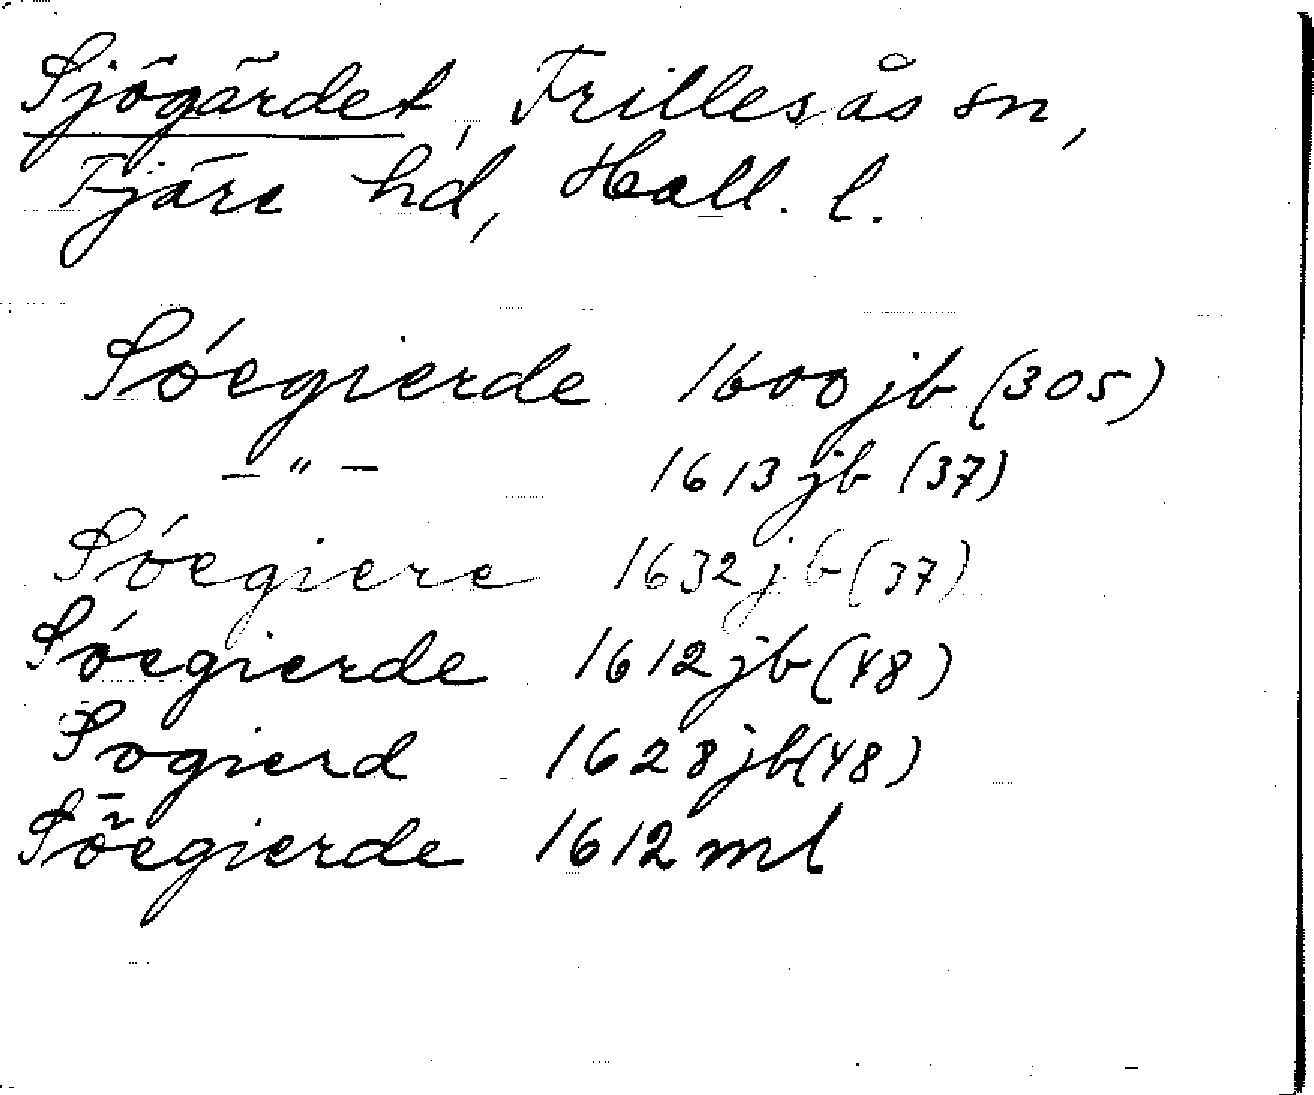 Sjögärdet, Frillesås sn,
Fjäre hd, Hall. l.
Sóegierde 1600 jb (305)
— " — 1613 jb (37)
Sóegiere 1632 jb (37)
Sóegierde 1612 jb (48)
Sogierd 1628 jb (48)
Sõegierde 1612 ml